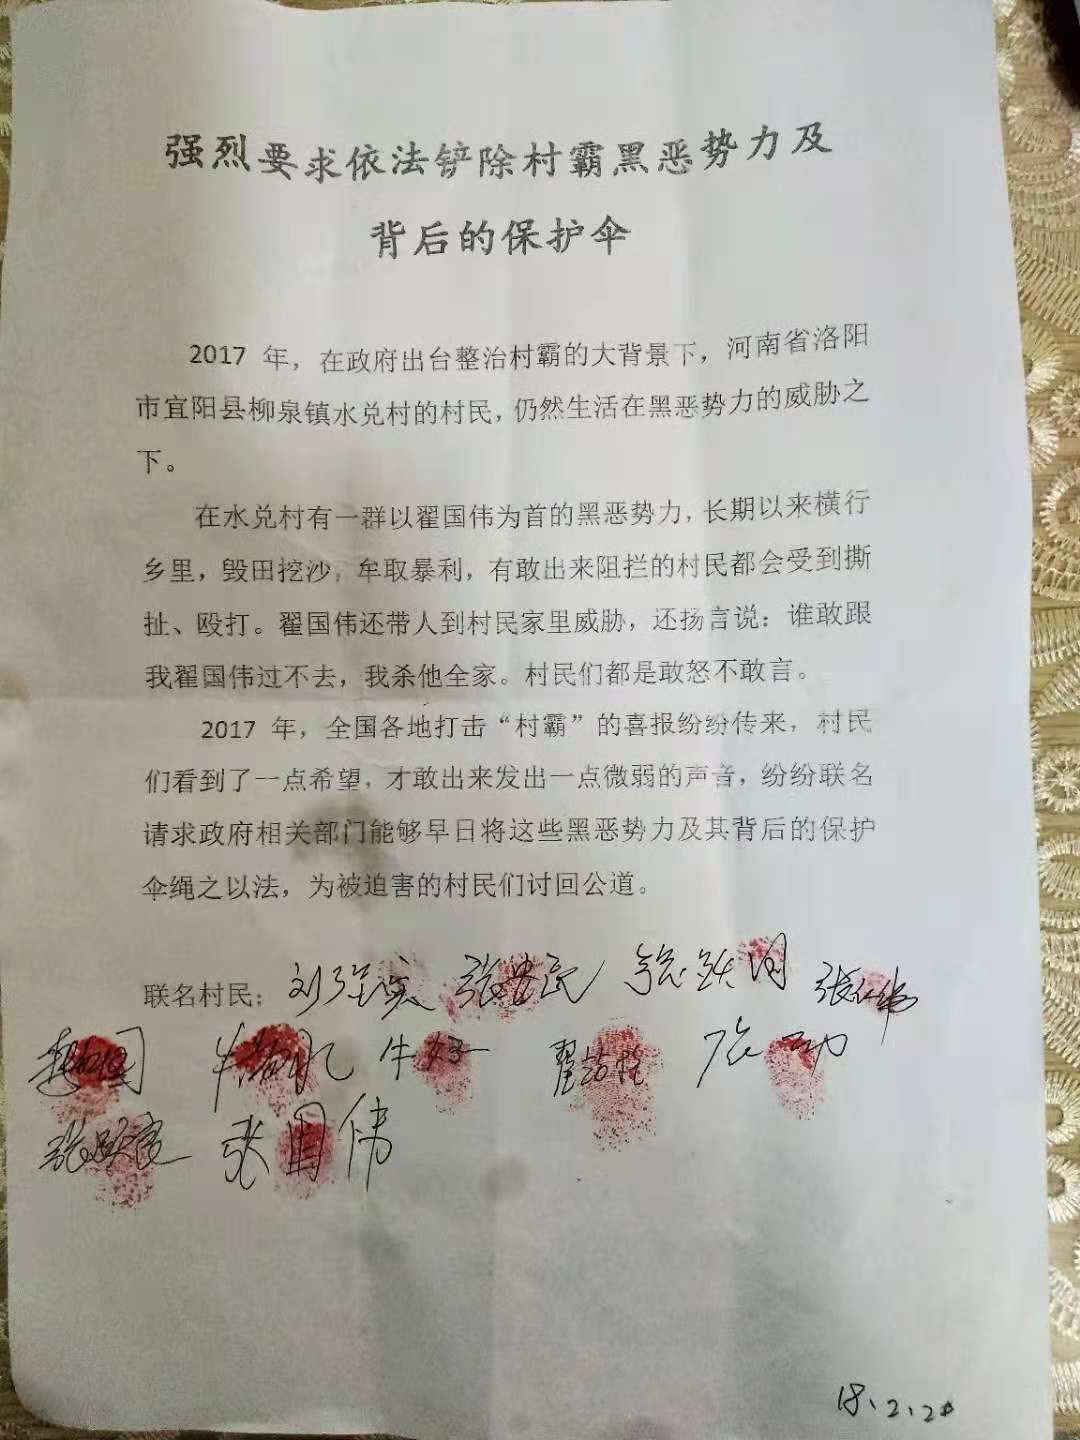 强烈要求依法铲除村霸黑恶势力及
背后的保护伞
2017 年，在政府出台整治村霸的大背景下，河南省洛阳
市宜阳县柳泉镇水兑村的村民，仍然生活在黑恶势力的威胁之
下。
在水兑村有一群以翟国伟为首的黑恶势力，长期以来横行
乡里，毁田挖沙，牟取暴利，有敢出来阻拦的村民都会受到撕
扯、殴打。翟国伟还带人到村民家里威胁，还扬言说：谁敢跟
我翟国伟过不去，我杀他全家。村民们都是敢怒不敢言。
2017 年，全国各地打击“村霸”的喜报纷纷传来，村民
们看到了一点希望，才敢出来发出一点微弱的声音，纷纷联名
请求政府相关部门能够早日将这些黑恶势力及其背后的保护
伞绳之以法，为被迫害的村民们讨回公道。
联名村民：
张国伟
18、2、20